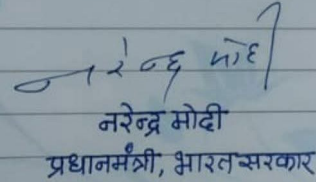 नरेन्द्र मोदी
नरेन्द्र मोदी
प्रधानमंत्री, भारत सरकार